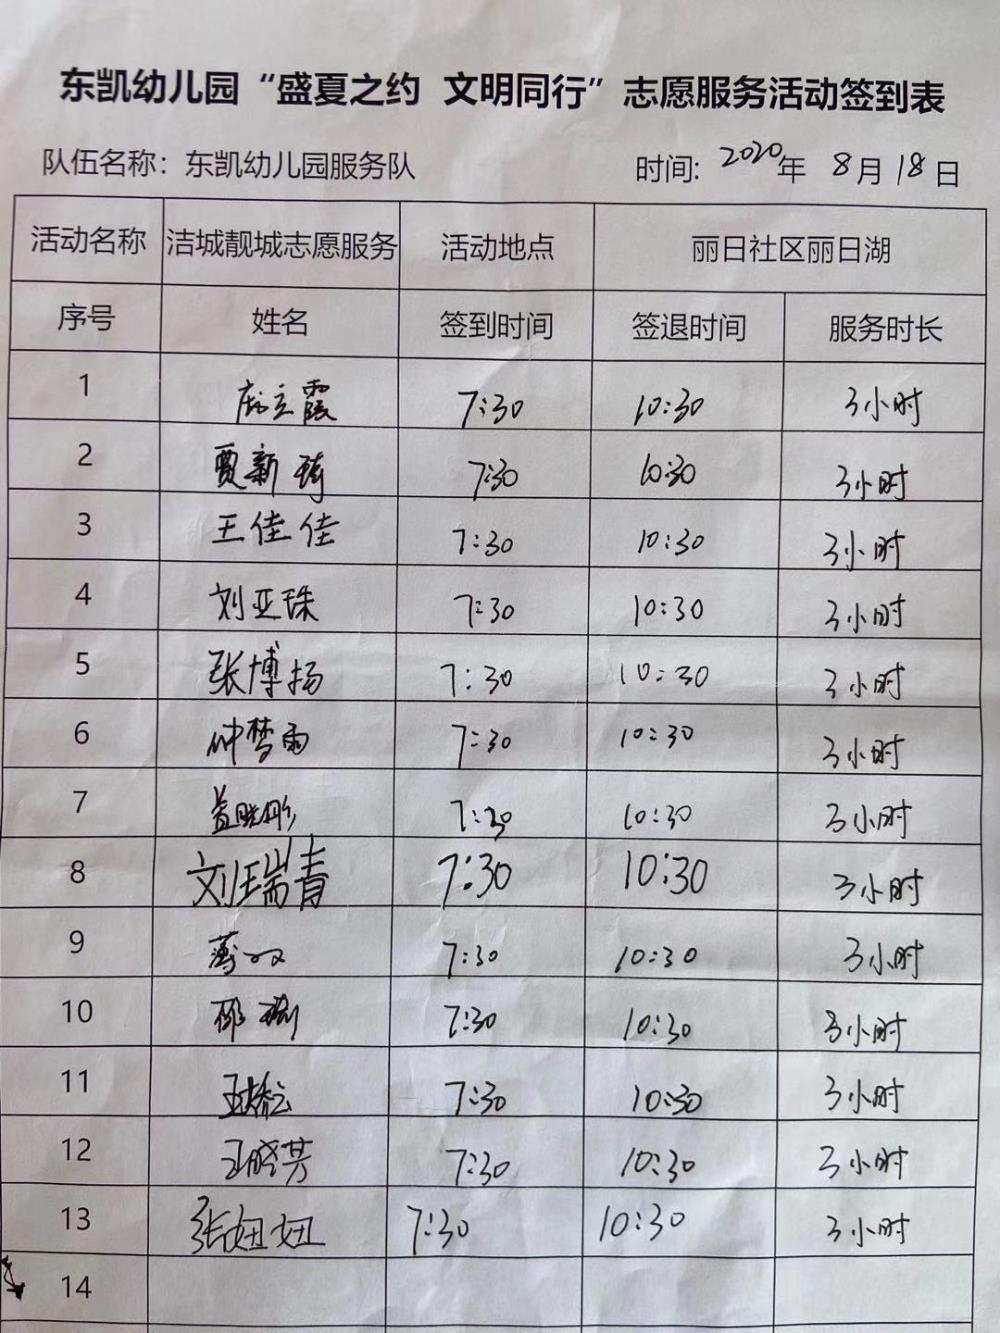 东凯幼儿园“盛夏之约 文明同行”志愿服务活动签到表
队伍名称：东凯幼儿园服务队 时间: 2020年 8月18日
活动名称 洁城靓城志愿服务 活动地点 丽日社区丽日湖
序号 姓名 签到时间 签退时间 服务时长
1 立霞 7:30 10:30 3小时
2 贾新琦 7:30 10:30 3小时
3 王佳佳 7:30 10:30 3小时
4 刘亚珠 7:30 10:30 3小时
5 张博扬 7:30 10:30 3小时
6 钟梦雨 7:30 10:30 3小时
7 盖晓彤 7:30 10:30 3小时
8 刘瑞青 7:30 10:30 3小时
9 7:30 10:30 3小时
10 7:30 10:30 3小时
11 7:30 10:30 3小时
12 王晓芳 7:30 10:30 3小时
13 张妞妞 7:30 10:30 3小时
14